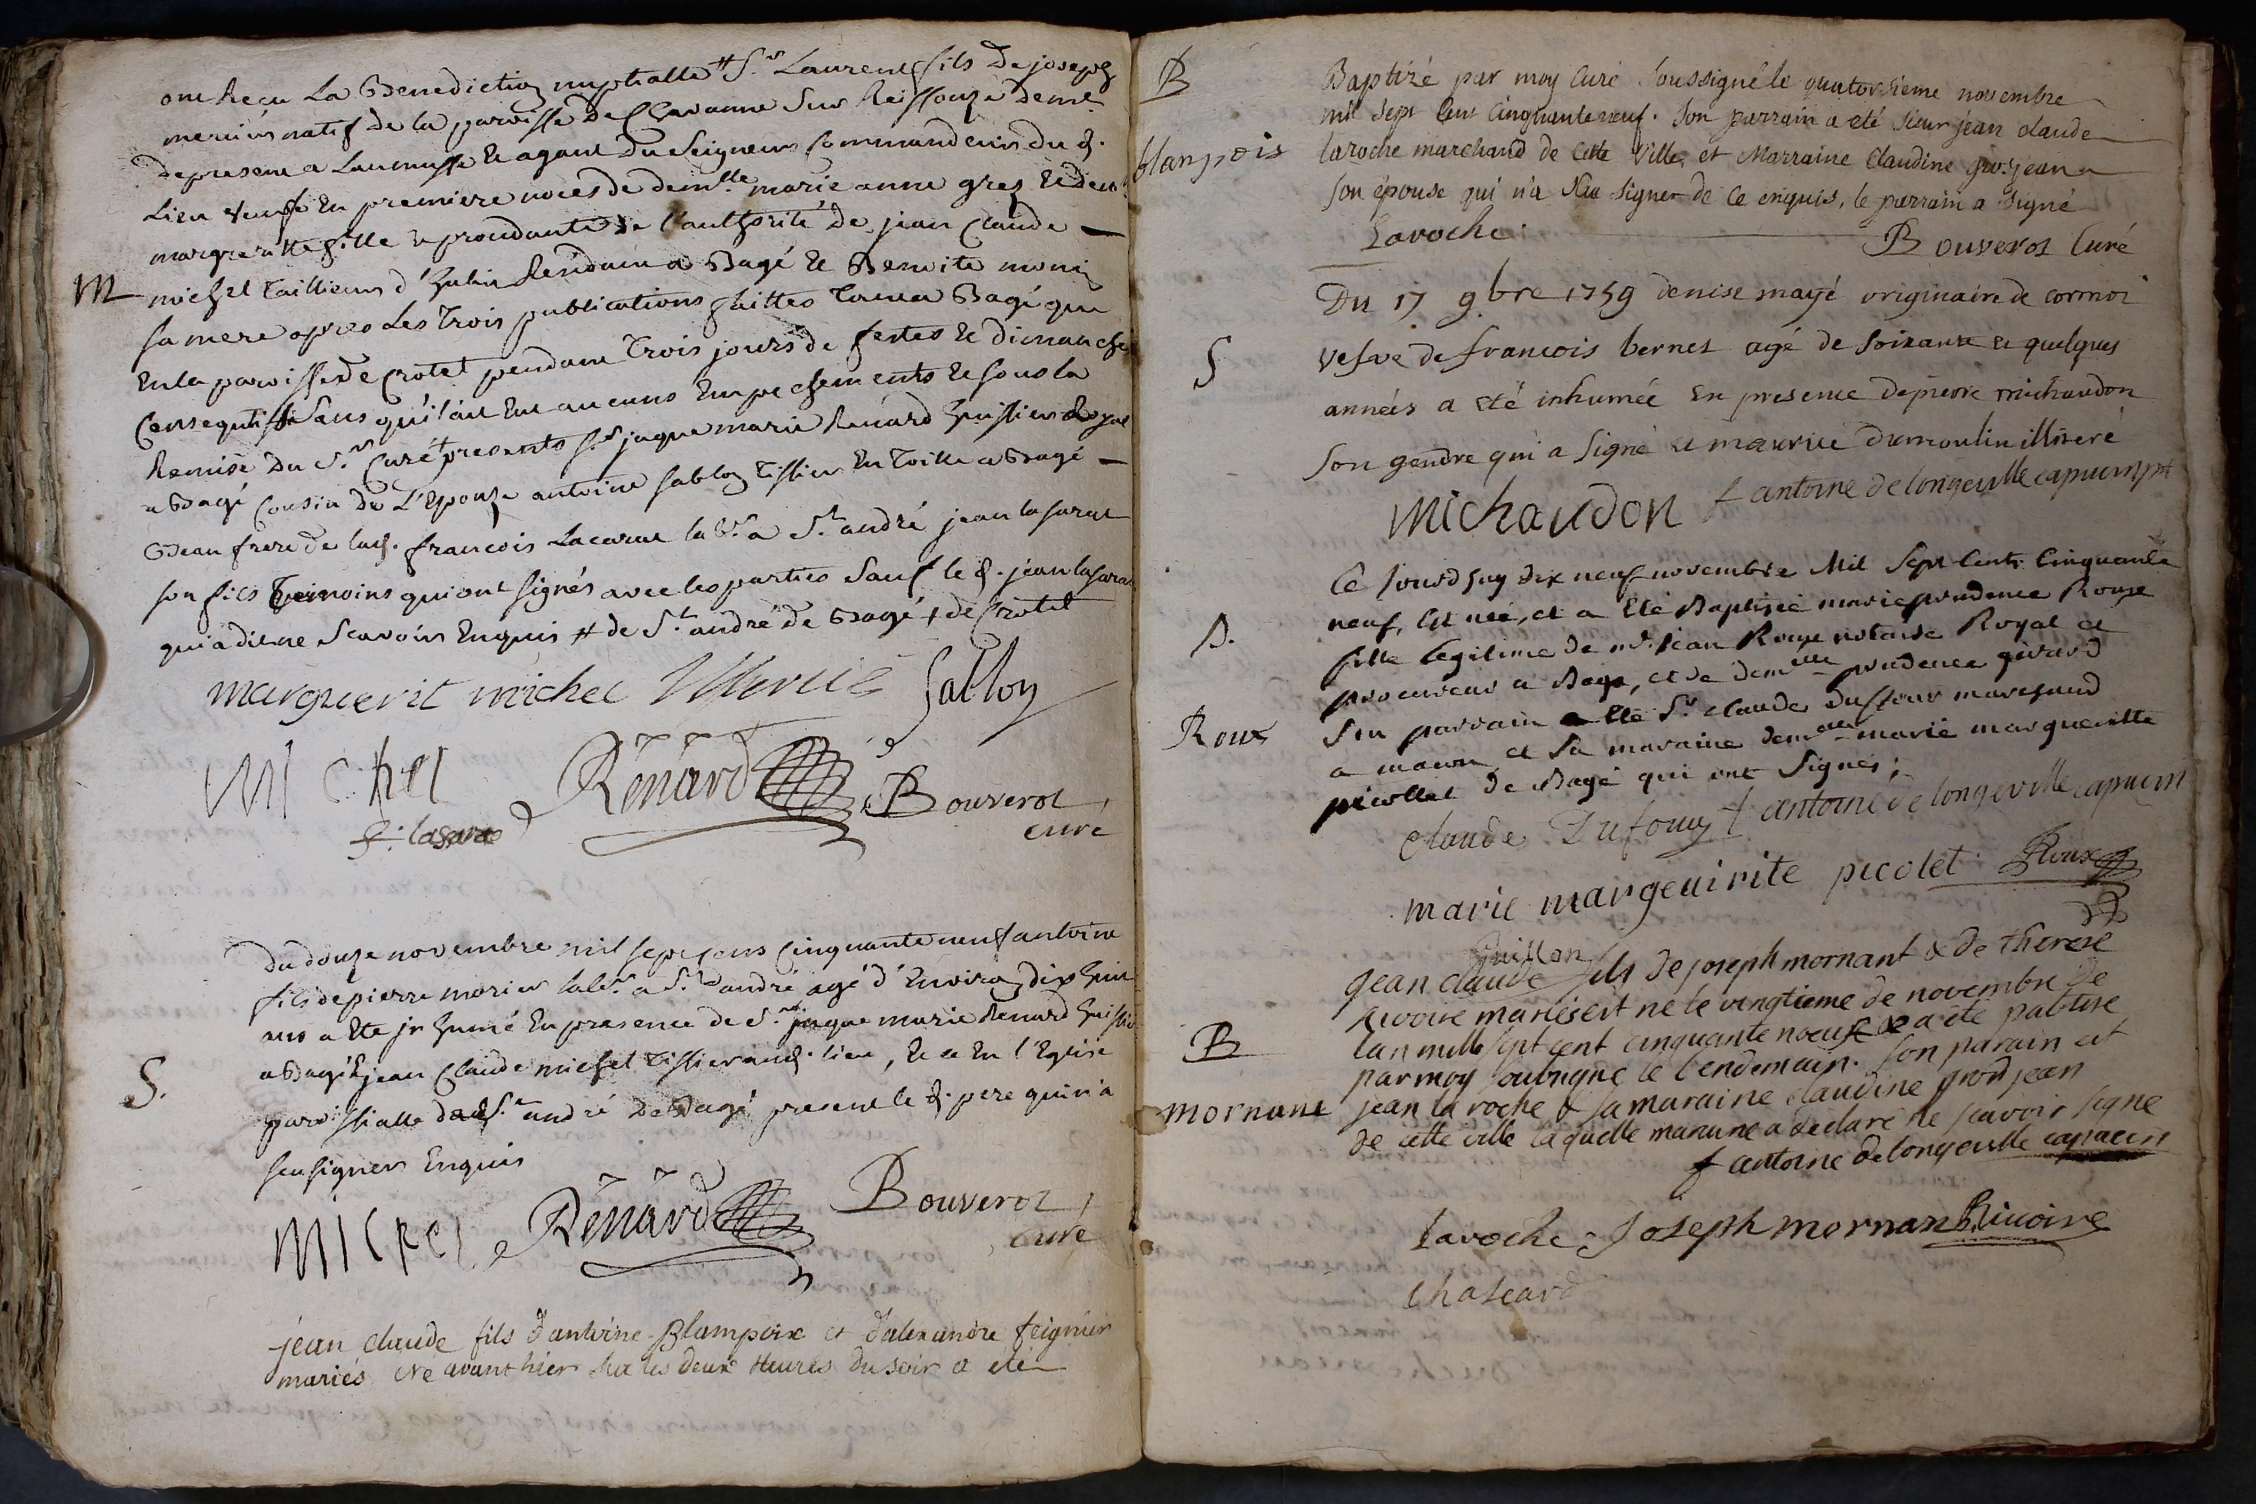 ont Reçu La Benediction nuptialle # S.r Laurent fils De joseph
mercier natif de la paroisse De Chavanne Sur Reissouze Deme
de present a Laumusse Et agent Du Seigneur Commandeur du d.
Lieu veuf En premiere noces de demlle. marie anne gres Et
margueritte fille de l'authorité De jean Claude —
M michel Taillieur d'habit Residant a Bagé Et Benoite monin
Sa mere apres Les Trois publications faittes Tant a Bagé que
En la paroisse de Crotet pendant Trois jours de festes Et dimanches
Consequtifs Sans qu'il ait Eut aucuns Empechements Et Sous la
Remise Du S.r Curé presents S.r jaque marie Renard huissier Royal
a Bagé Cousin de L'Epouze antoine Sablon Tissier En Toille a Bagé —
frere de françois Lacarat lab.r a S.t andré jean lasarat
Son fils Temoins qui ont Signés avec les parties Sauf le d. jean lasarat
qui a dit ne Scavoir Enquis # de S.t andré de Bagé + de Crotet
marguerit michel Mercié Sablon
Michel Renard Bouverot
lasarat curé
du douze novembre mil sept cens Cinquante neuf antoine
fils de pierre morier lab.r a S.t andré agé d'Environ dix huit
ans a Ete jnhumé En presence de S.r jaque marie Renard huissier
a Bagé & jean Claude michel Tissier aud. lieu, Et ce En l'Eglise
S. paroissialle de S.t andré de Bagé present le d. pere qui n'a
Scu signer Enquis
Michel Renard Bouverot
curé
jean claude fils d'antoine Blampoix et d'alexandre feignier
mariés Né avant hier Sur les deux Heures Du soir a été
B Baptizé par moy Curé Soussigné le quatorzieme novembre
mil sept Cent Cinquante neuf. Son parrain a eté Sieur jean claude
blanpois laroche marchand de Cette Ville, et Marraine Claudine grosjean
Son épouse qui n'a Scu signer de Ce enquis, le parrain a Signé
Laroche. Bouverot Curé
Du 17 9bre 1759 denise mayé originaire de cormoz
S vefve de francois bernet agé de Soixante et quelques
années a eté inhumée En presence de pierre michaudon
Son gendre qui a Signé et maurice dumoulin illiteré
Michaudon f antoine de longeville capucin
Ce Jourd'huy dix neuf novembre Mil Sept Cents Cinquante
B. neuf, Est née, et a Eté Baptisée marie prudence Roux
fille legitime de me. jean Roux notaire Royal et
procureur a Bagé, et de demlle. prudence girard
Roux Son parrain a Eté S.r Claude Dufour marchand
a macon et Sa maraine demelle. marie marguerite
picollet de Bagé qui ont Signés;
Claude Dufour f antoine de longeville capucin
marie margeuirite picolet Roux
juillon
jean claude fils de joseph mornant & de therese
rivoire mariés est né le vingtieme de novembre de
B lan mille sept cent cinquante noeuf & a été pabtisé
par moy soubsigné le lendemain. Son parain est
mornant jean la roche & sa maraine claudine gros jean
de cette ville laquelle maraine a declaré ne scavoir signe
f antoine de longeville capucin
Laroche. Joseph mornan Rivoire
Chatard